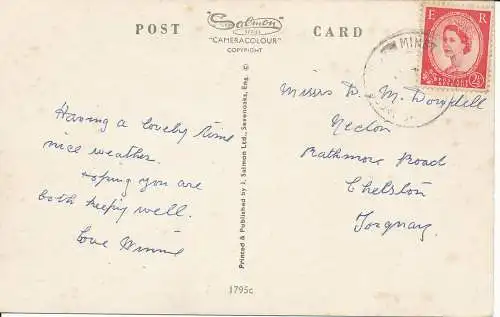 POST CARD
"Salmon"
SERIES
"CAMERACOLOUR"
COPYRIGHT
E R
2½
POSTAGE REVENUE
MIN
Having a lovely time
nice weather.
Hoping you are
both keeping well.
Love Winnie
Printed & Published by J. Salmon Ltd., Sevenoaks, Eng. ©
D. M. Dowdell
Necton
Rathmore Road
Chelston
Torquay
1795c